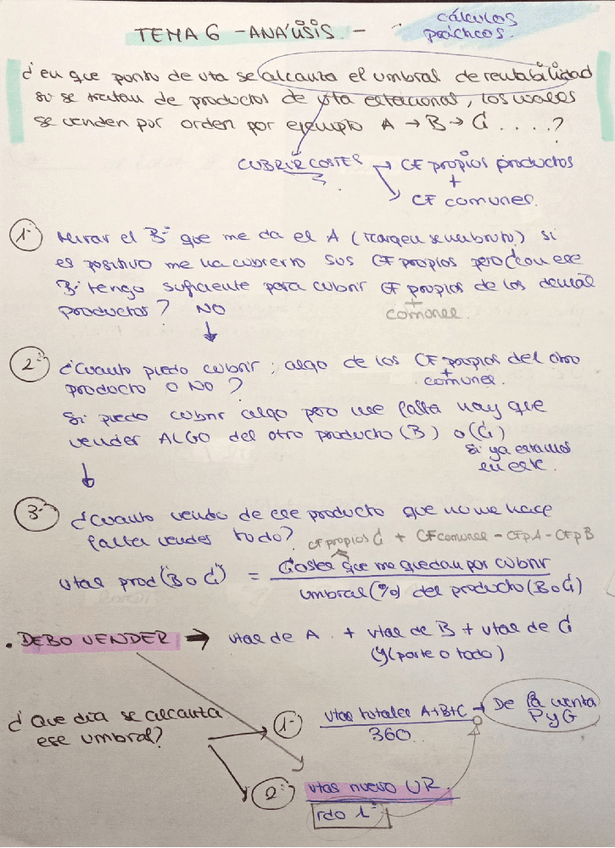 TEMA 6 - ANÁLISIS. -
cálculos
prácticos.
¿en que punto de vta se alcanza el umbral de rentabilidad
si se tratan de productos de vta estacional, los cuales
se venden por orden por ejemplo A → B → C ....?
CUBRIR COSTES → CF propios productos
+
CF comunes.
1º Mirar el Bº que me da el A (margen s/umbruto) si
es positivo me ha cubierto sus CF propios pero ¿con ese
Bº tengo suficiente para cubrir CF propios de los demás
productos? NO
+
comunes.
2º ¿Cuanto puedo cubrir; algo de los CF propios del otro
producto o NO?
+
comunes.
Si puedo cubrir algo pero me falta hay que
vender ALGO del otro producto (B) o (C)
si ya estamos
en este.
3º ¿Cuanto vendo de ese producto que no me hace
falta vender todo?
CF propios C + CF comunes - CFpA - CFpB
vtas prod (B o C) = Costes que me quedan por cubrir
umbral (%) del producto (B o C)
. DEBO VENDER → vtas de A + vtas de B + vtas de C
y (parte o todo)
¿Que dia se alcanza
ese umbral?
1º vtas totales A+B+C → De la cuenta
PyG
360
2º vtas nuevo UR.
rdo 1º